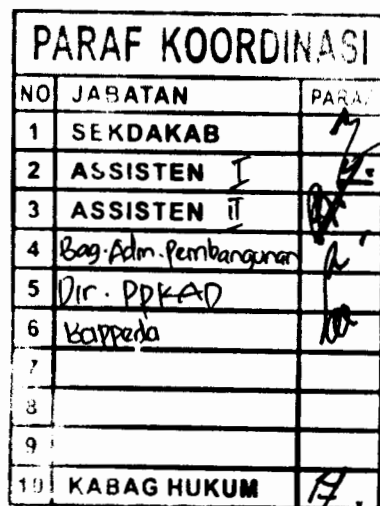 PARAF KOORDINASI
NO JABATAN PARAF
1 SEKDAKAB
2 ASSISTEN I
3 ASSISTEN II
4 Bag. Adm. Pembangunan
5 Dir. PPKAD
6 Bappeda
7
8
9
10 KABAG HUKUM